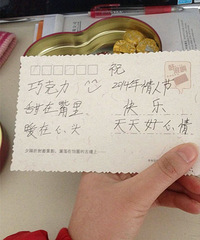 祝
巧克力
2014年情人节
甜在嘴里
快乐
爱在心头
天天好心情